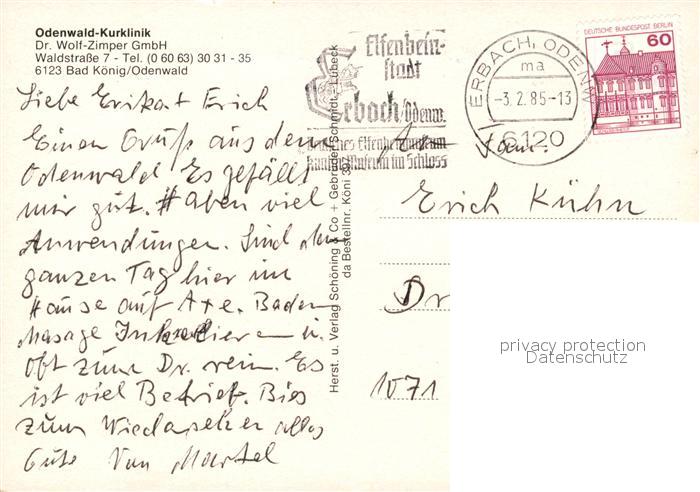 Odenwald-Kurklinik
Dr. Wolf-Zimper GmbH
Waldstraße 7 - Tel. (0 60 63) 30 31 - 35
6123 Bad König/Odenwald
Liebe Erika + Erich
Einen Gruß aus dem
Odenwald Es gefällt
mir gut. Haben viel
Anwendungen. Sind den
ganzen Tag hier im
Hause auf Axe. Baden
Masage Inhalieren u.
oft zum Dr. rein. Es
ist viel Betrieb. Bies
zum Wiedersehen alles
Gute Von Martel
Herst. u. Verlag Schöning & Co + Gebrüder Schmidt, Lübeck
da Bestellnr. Köni 39
Elfenbein-
stadt
Erbach/Odenw.
Deutsches Elfenbeinmuseum
Museum im Schloss
ERBACH, ODENW
ma
-3.2.85-13
6120
DEUTSCHE BUNDESPOST BERLIN
60
Fam.
Erich Kühn
Dr
1071
privacy protection
Datenschutz